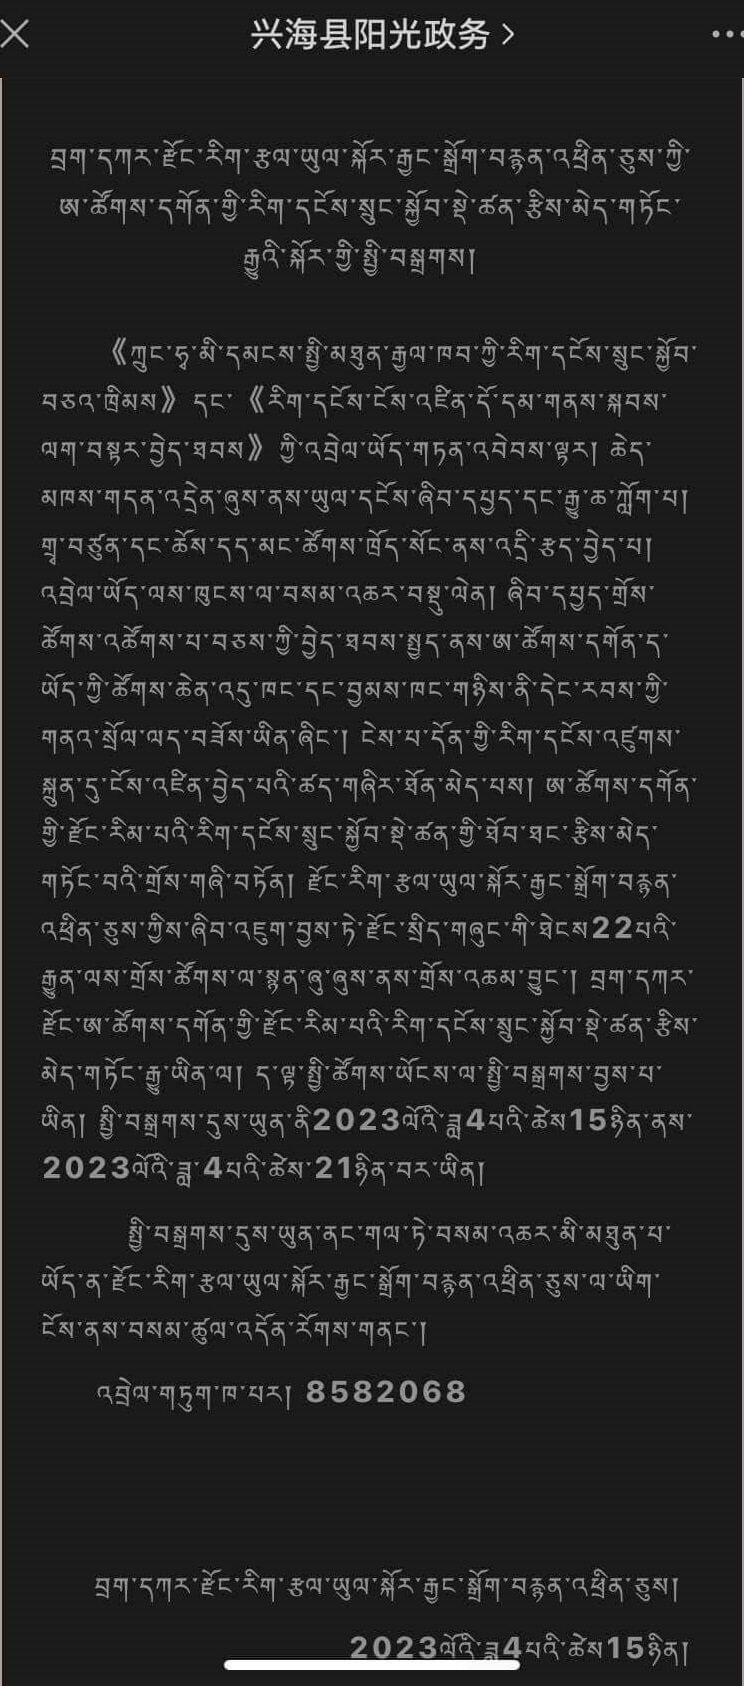 兴海县阳光政务
བྲག་དཀར་རྫོང་རིག་རྩལ་ཡུལ་སྐོར་རྒྱང་སྒྲོག་བརྙན་འཕྲིན་ཅུས་ཀྱི་
ཨ་ཚོགས་དགོན་གྱི་རིག་དངོས་སྲུང་སྐྱོབ་སྡེ་ཚན་རྩིས་མེད་གཏོང་
རྒྱུའི་སྐོར་གྱི་སྤྱི་བསྒྲགས།
《ཀྲུང་ཧྭ་མི་དམངས་སྤྱི་མཐུན་རྒྱལ་ཁབ་ཀྱི་རིག་དངོས་སྲུང་སྐྱོབ་
བཅའ་ཁྲིམས》 དང་ 《རིག་དངོས་ངོས་འཛིན་དོ་དམ་གནས་སྐབས་
ལག་བསྟར་བྱེད་ཐབས》 ཀྱི་འབྲེལ་ཡོད་གཏན་འབེབས་ལྟར། ཆེད་
མཁས་གདན་འདྲེན་ཞུས་ནས་ཡུལ་དངོས་ཞིབ་དཔྱད་དང་རྒྱུ་ཆ་ཀློག་པ།
གྲྭ་བཙུན་དང་ཆོས་དད་མང་ཚོགས་ཁྲོད་སོང་ནས་འདྲི་རྩད་བྱེད་པ།
འབྲེལ་ཡོད་ལས་ཁུངས་ལ་བསམ་འཆར་བསྡུ་ལེན། ཞིབ་དཔྱད་གྲོས་
ཚོགས་འཚོགས་པ་བཅས་ཀྱི་བྱེད་ཐབས་སྤྱད་ནས་ཨ་ཚོགས་དགོན་ད་
ཡོད་ཀྱི་ཚོགས་ཆེན་འདུ་ཁང་དང་བྱམས་ཁང་གཉིས་ནི་དེང་རབས་ཀྱི་
གནའ་སྲོལ་ལད་བཟོས་ཡིན་ཞིང་། ངེས་པ་དོན་གྱི་རིག་དངོས་འཛུགས་
སྐྲུན་དུ་ངོས་འཛིན་བྱེད་པའི་ཚད་གཞིར་ཐོན་མེད་པས། ཨ་ཚོགས་དགོན་
གྱི་རྫོང་རིམ་པའི་རིག་དངོས་སྲུང་སྐྱོབ་སྡེ་ཚན་གྱི་ཐོབ་ཐང་རྩིས་མེད་
གཏོང་བའི་གྲོས་གཞི་བཏོན། རྫོང་རིག་རྩལ་ཡུལ་སྐོར་རྒྱང་སྒྲོག་བརྙན་
འཕྲིན་ཅུས་ཀྱིས་ཞིབ་འཇུག་བྱས་ཏེ་རྫོང་སྲིད་གཞུང་གི་ཐེངས22པའི་
རྒྱུན་ལས་གྲོས་ཚོགས་ལ་སྙན་ཞུ་ཞུས་ནས་གྲོས་འཆམ་བྱུང་། བྲག་དཀར་
རྫོང་ཨ་ཚོགས་དགོན་གྱི་རྫོང་རིམ་པའི་རིག་དངོས་སྲུང་སྐྱོབ་སྡེ་ཚན་རྩིས་
མེད་གཏོང་རྒྱུ་ཡིན་ལ། ད་ལྟ་སྤྱི་ཚོགས་ཡོངས་ལ་སྤྱི་བསྒྲགས་བྱས་པ་
ཡིན། སྤྱི་བསྒྲགས་དུས་ཡུན་ནི2023ལོའི་ཟླ4པའི་ཚེས15ཉིན་ནས་
2023ལོའི་ཟླ་4པའི་ཚེས་21ཉིན་བར་ཡིན།
སྤྱི་བསྒྲགས་དུས་ཡུན་ནང་གལ་ཏེ་བསམ་འཆར་མི་མཐུན་པ་
ཡོད་ན་རྫོང་རིག་རྩལ་ཡུལ་སྐོར་རྒྱང་སྒྲོག་བརྙན་འཕྲིན་ཅུས་ལ་ཡིག་
ངོས་ནས་བསམ་ཚུལ་འདོན་རོགས་གནང་།
འབྲེལ་གཏུག་ཁ་པར། 8582068
བྲག་དཀར་རྫོང་རིག་རྩལ་ཡུལ་སྐོར་རྒྱང་སྒྲོག་བརྙན་འཕྲིན་ཅུས།
2023ལོའི་ཟླ4པའི་ཚེས15ཉིན།